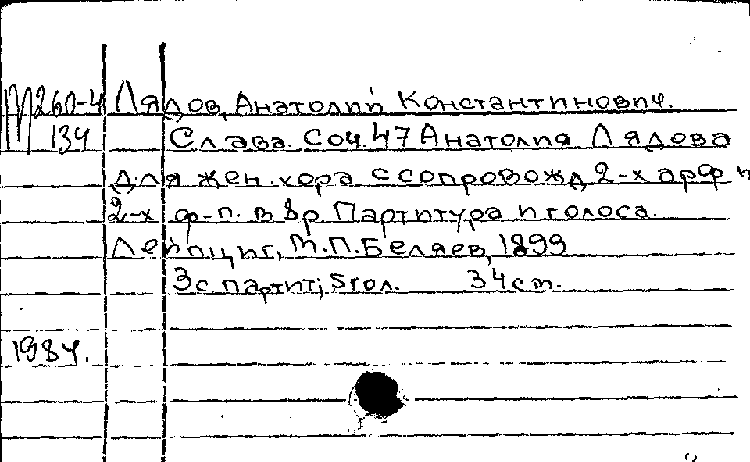 М260-4 Лядов, Анатолий Константинович.
134 Слава. Соч. 47 Анатолия Лядова
для жен. хора с сопровожд. 2-х арф и
2-х ф-п. в 8 р. Партитура и голоса.
Лейпциг, М.П. Беляев, 1899
3 с. партит; 5 гол. 34 cm.
1984.